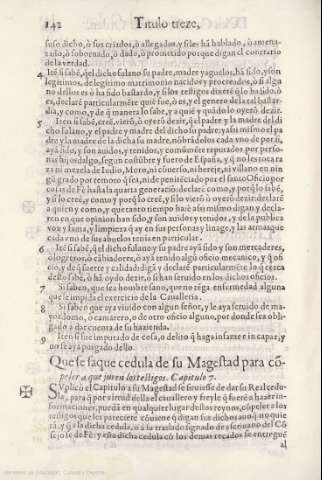 142 Titulo treze,
suso dicho, ò sus criados, ò allegados, y si les há hablado, ò amena-
zado, ò sobornado, ò dado, ò prometido porque digan el contrario
de la verdad.
4 Ité si sabé, q̃ el dicho fulano su padre, madre y aguelos, há sido, y son
legitimos, de legitimo matrimonio nacidos y procreados, ò si algu
no dellos es ò ha sido bastardo, y si los testigos dixeré q̃ lo há sido, ò
es, declaré particularméte qué fue, ò es, y el genero de la tal bastar-
dia, y como, y de q̃ manera lo sabe, y a quié y quádo lo oyeró dezir.
5 Ité si sabé, creé, vieró, ò oyeró dezir, q̃ el padre y la madre del di
cho fulano, y el padre y madre del dicho su padre; y assi mismo el pa
dre y la madre de la dicha su madre, nóbrádolos cada vno de por si,
aya sido, y son auidos, y tenidos, y comúnméte reputados por perso-
nas hijosdalgo, segun costúbre y fuero de España, y q̃ no les toca ra
za ni mezcla de Iudio, Moro, ni cóuerso, ni hereje, ni villano en nin
gú grado por remoto q̃ sea, ni de penitéciado por el santo Oficio por
cosas de Fé hasta la quarta generació: declaré como, y porq̃ lo sabé,
y si lo creé, como y porq̃ lo creé, y si lo vieró ò oyeró dezir: declaré
a quien y como, y que tanto tiempo há: y assi mismo digan y decla-
ren en que opinion han sido, y son auidos y tenidos, y de la publica
voz y fama, y limpieza q̃ ay en sus personas y linage, y las armas que
cada vno de sus abuelos tenia en particular.
6 Ité si sabé, q̃ el dicho fulano y su padre aya sido y son mercaderes,
ò logreros, ò cábiadores, ò aya tenido algú oficio mecanico, y q̃ ofi
cio, y de q̃ suerte y calidad: diga y declaré particularméte lo q̃ cerca
desto sabé, ò há oydo dezir, ò si han seruido en los dichos oficios.
7 Si saben, que sea hombre sano, que no téga enfermedad alguna
que le impida el exercicio de la Caualleria.
8 Si saben que aya viuido con algun señor, y le aya seruido de ma-
yordomo, ò camarero, ò de otro oficio alguno, por donde sea obli
gado a dar cuenta de su hazienda.
9 Ité si fue imputado de cosa, ò delito q̃ haga infame: en q̃ caso, y
no se aya purgado dello.
Que se saque cedula de su Magestad para có-
peler a que juren los testigos. Capitulo 7.
SVplicó el Capitulo a su Magestad se siruiesse de dar su Real cedu-
la, para q̃ por virtud della el cauallero y freyle q̃ fueré a hazer in-
formaciones, puedá en qualquier lugar destos reynos, cópeler a los
testigos que les pareciere cóuiene q̃ digan sus dichos aunq̃ no quie
rá, y q̃ a la dicha cedula, ò a su traslado signado de escriuano del Có
sejo se dé Fé: y esta dicha cedula có los demas recados se entregué
al